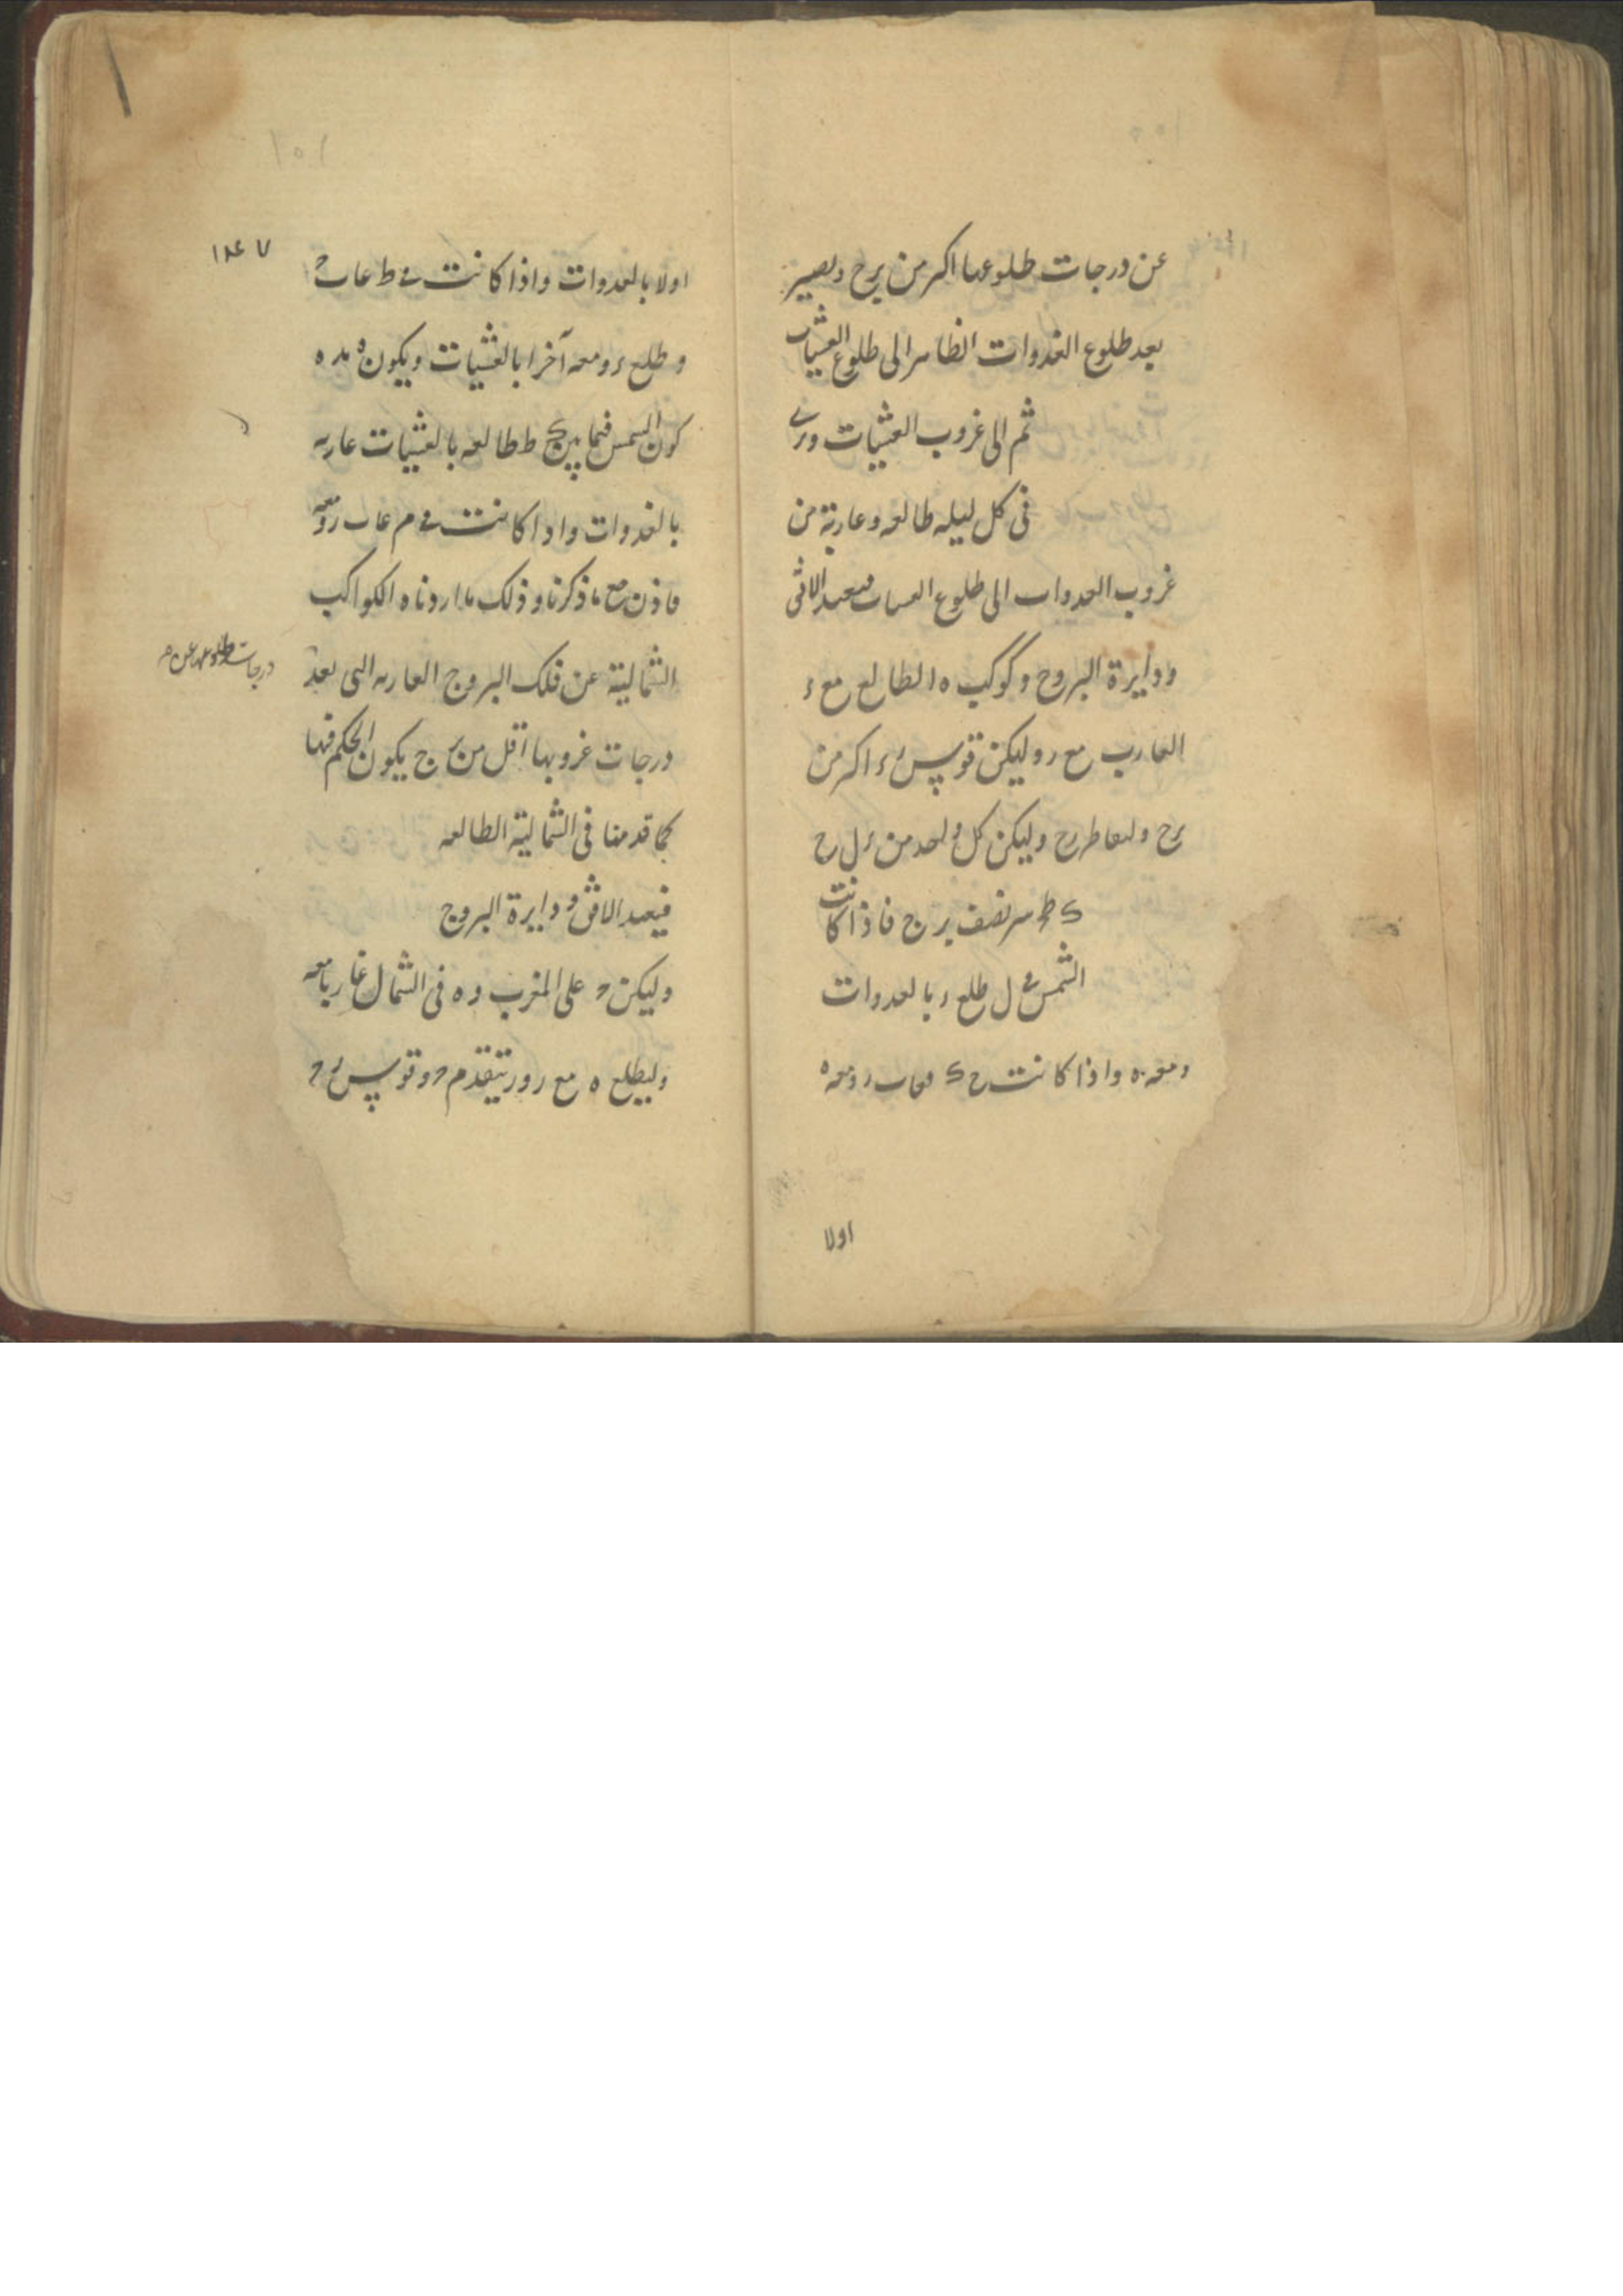 عن درجات طلوعها اكثر من برج ويصير
بعد طلوع الغدوات الظاهر الى طلوع العشيات
ثم الى غروب العشيات وترى
فى كل ليله طالعه وغاربة من
غروب الغدوات الى طلوع العشيات فنعيد الافق
ودايرة البروج وكوكب ه الطالع مع ء
الغارب مع ر وليكن قوس رء اكثر من
برج وليكن كل واحد من
نصف برج فاذا كانت
الشمس فى ل طلع ر بالغدوات
ومعه ه واذا كانت ح ك ومعه ه
اولا
اولا بالغدوات واذا كانت فى ط غاب
وطلع ء ومعه آخرا بالعشيات ويكون
كون الشمس فيما بين ك ط طالعه بالعشيات غاربه
بالغدوات واذا كانت فى م غاب ر ومعه
فاذن مع ما ذكرنا وذلك ما اردناه الكواكب
الشمالية عن فلك البروج الغاربه التى بعد
درجات طلوعها عن
درجات غروبها اقل من برج يكون الحكم فيها
كما قدمنا فى الشمالية الطالعه
فنعيد الافق ودايرة البروج
وليكن ء على المغرب و ه فى الشمال غاربا معه
وليطلع ه مع ر و ر يتقدم ء وقوس رء